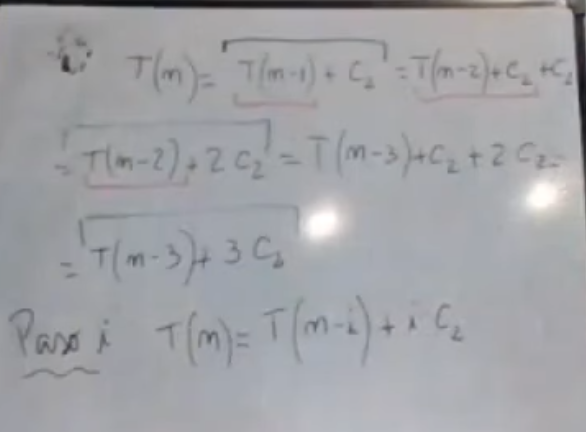 T(n) = T(n-1) + C₂ = T(n-2) + C₂ + C₂
= T(n-2) + 2 C₂ = T(n-3) + C₂ + 2 C₂ =
= T(n-3) + 3 C₂
Paso i T(n) = T(n-i) + i C₂